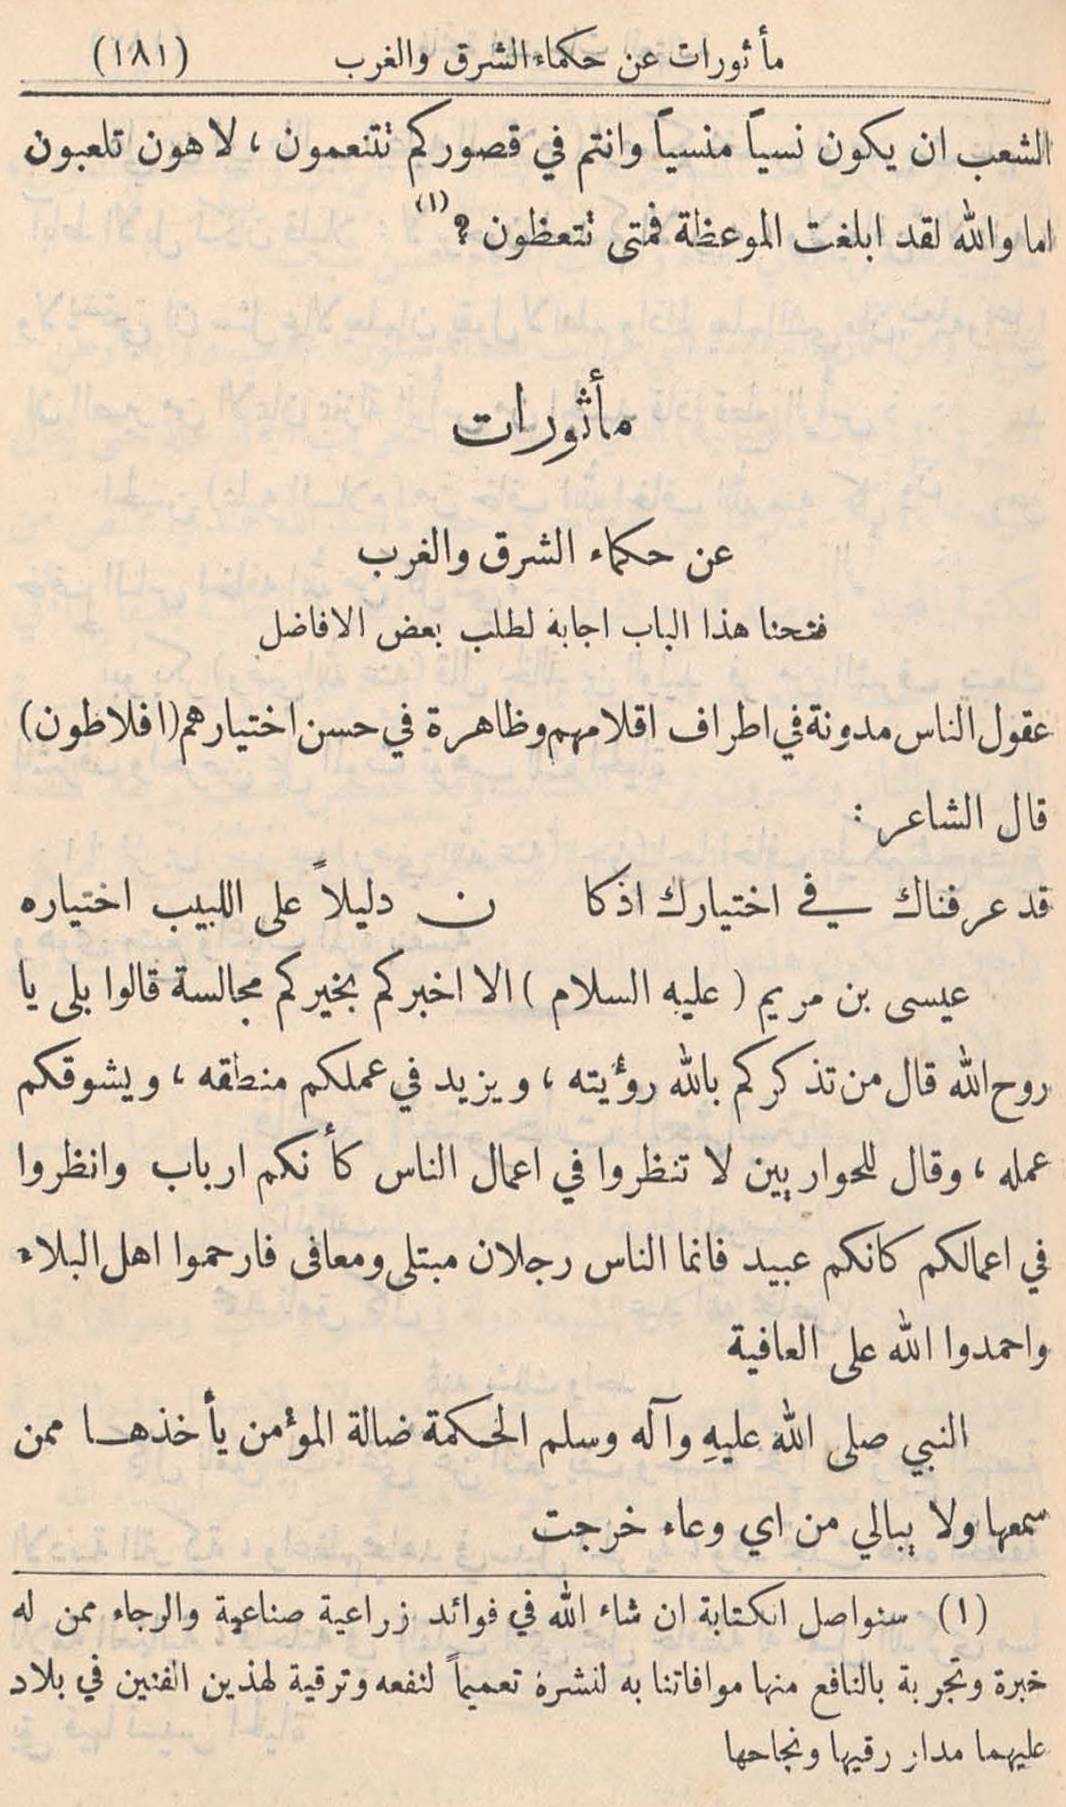 مأثورات عن حكماء الشرق والغرب (١٨١)
الشعب ان يكون نسياً منسياً وانتم في قصوركم تتنعمون ، لاهون تلعبون
اما والله لقد ابلغت الموعظة فمتى تتعظون ؟ (١)
مأثورات
عن حكماء الشرق والغرب
فتحنا هذا الباب اجابة لطلب بعض الافاضل
عقول الناس مدونة في اطراف اقلامهم وظاهرة في حسن اختيارهم (افلاطون)
قال الشاعر :
قد عرفناك في اختيارك اذ كا ن دليلاً على اللبيب اختياره
عيسى بن مريم ( عليه السلام ) الا اخبركم بخيركم مجالسة قالوا بلى يا
روح الله قال من تذكركم بالله رؤيته ، ويزيد في عملكم منطقه ، ويشوقكم
عمله ، وقال للحواريين لا تنظروا في اعمال الناس كأنكم ارباب وانظروا
في اعمالكم كانكم عبيد فانما الناس رجلان مبتلى ومعافى فارحموا اهل البلاء
واحمدوا الله على العافية
النبي صلى الله عليهِ وآله وسلم الحكمة ضالة المؤمن يأخذها ممن
سمعها ولا يبالي من اي وعاء خرجت
(١) سنواصل الكتابة ان شاء الله في فوائد زراعية صناعية والرجاء ممن له
خبرة وتجربة بالنافع منها موافاتنا به لنشرة تعميماً لنفعه وترقية لهذين الفنين في بلاد
عليهما مدار رقيها ونجاحها